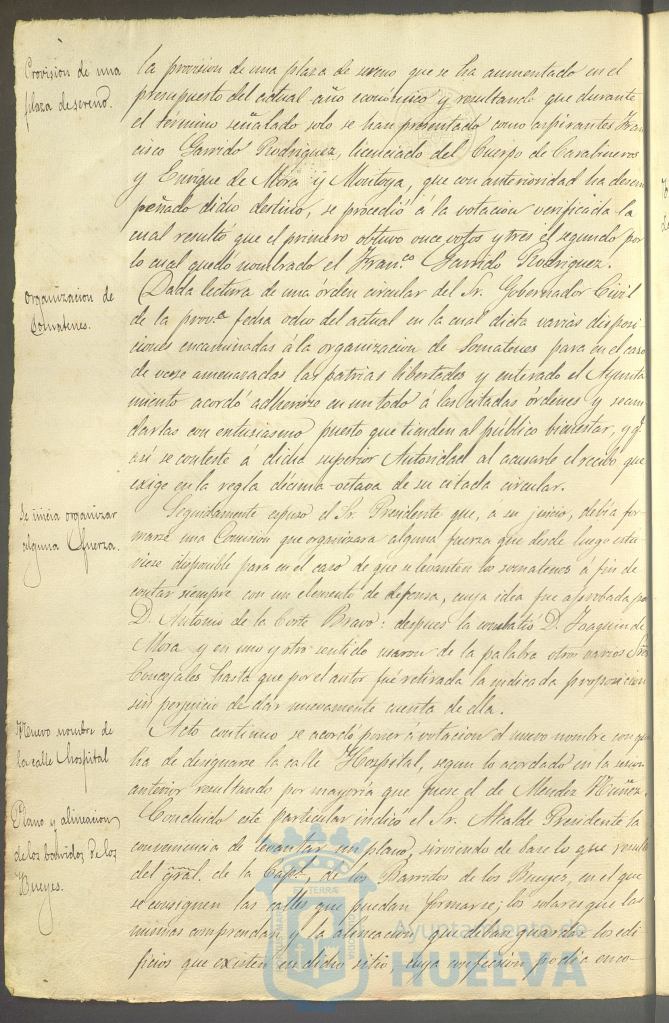 Provision de una
plaza de sereno.
la provision de una plaza de sereno que se ha aumentado en el
presupuesto del actual año económico y resultando que durante
el término señalado solo se han presentado como aspirantes Fran
cisco Garrido Rodriguez, licenciado del Cuerpo de Carabineros
y Enrique de Mora y Montoya, que con anterioridad ha desem
peñado dicho destino, se procedió á la votacion verificada la
cual resultó que el primero obtuvo once votos y tres el segundo por
lo cual quedó nombrado el Fran.co Garrido Rodriguez.
Organizacion de
Somatenes.
Dada lectura de una órden circular del Sr. Gobernador Civil
de la prov.a fecha ocho del actual en la cual dicta varias disposi
ciones encaminadas á la organizacion de Somatenes para en el caso
de verse amenazadas las patrias libertades y enterado el Ayunta
miento acordó adherirse en un todo á las citadas órdenes y secun
darlas con entusiasmo puesto que tienden al público bienestar, y q.e
así se conteste á dicha superior Autoridad al acusarle el recibo que
exige en la regla décima-octava de su citada circular.
Se inicia organizar
alguna fuerza.
Seguidamente espuso el Sr. Presidente que, á su juicio, debia for
marse una Comision que organizara alguna fuerza que desde luego estu
viese disponible para en el caso de que se levanten los somatenes á fin de
contar siempre con un elemento de defensa, cuya idea fue aprobada por
D. Antonio de la Corte Bravo: despues la combatió D. Joaquin de
Mora y en uno y otro sentido usaron de la palabra otros varios Sres
Concejales hasta que por el autor fue retirada la indicada proposicion
sin perjuicio de dar nuevamente cuenta de ella.
Nuevo nombre de
la calle Hospital
Acto continuo se acordó poner á votacion el nuevo nombre con que
ha de designarse la calle Hospital, segun lo acordado en la sesion
anterior resultando por mayoría que fuese el de Mendez Nuñez.
Plano y alineacion
de los barridos de los
Bueyes.
Concluido este particular indicó el Sr. Alcalde Presidente la
conveniencia de levantar un plano, sirviendo de base lo que resulte
del gral. de la Cap.l, de los Barridos de los Bueyes, en el que
se consignen las calles que puedan formarse; los solares que las
mismas comprendan y la alineacion que deban guardar los edi
ficios que existen en dicho sitio, cuya confeccion podia enco-
Ayuntamiento de
HUELVA